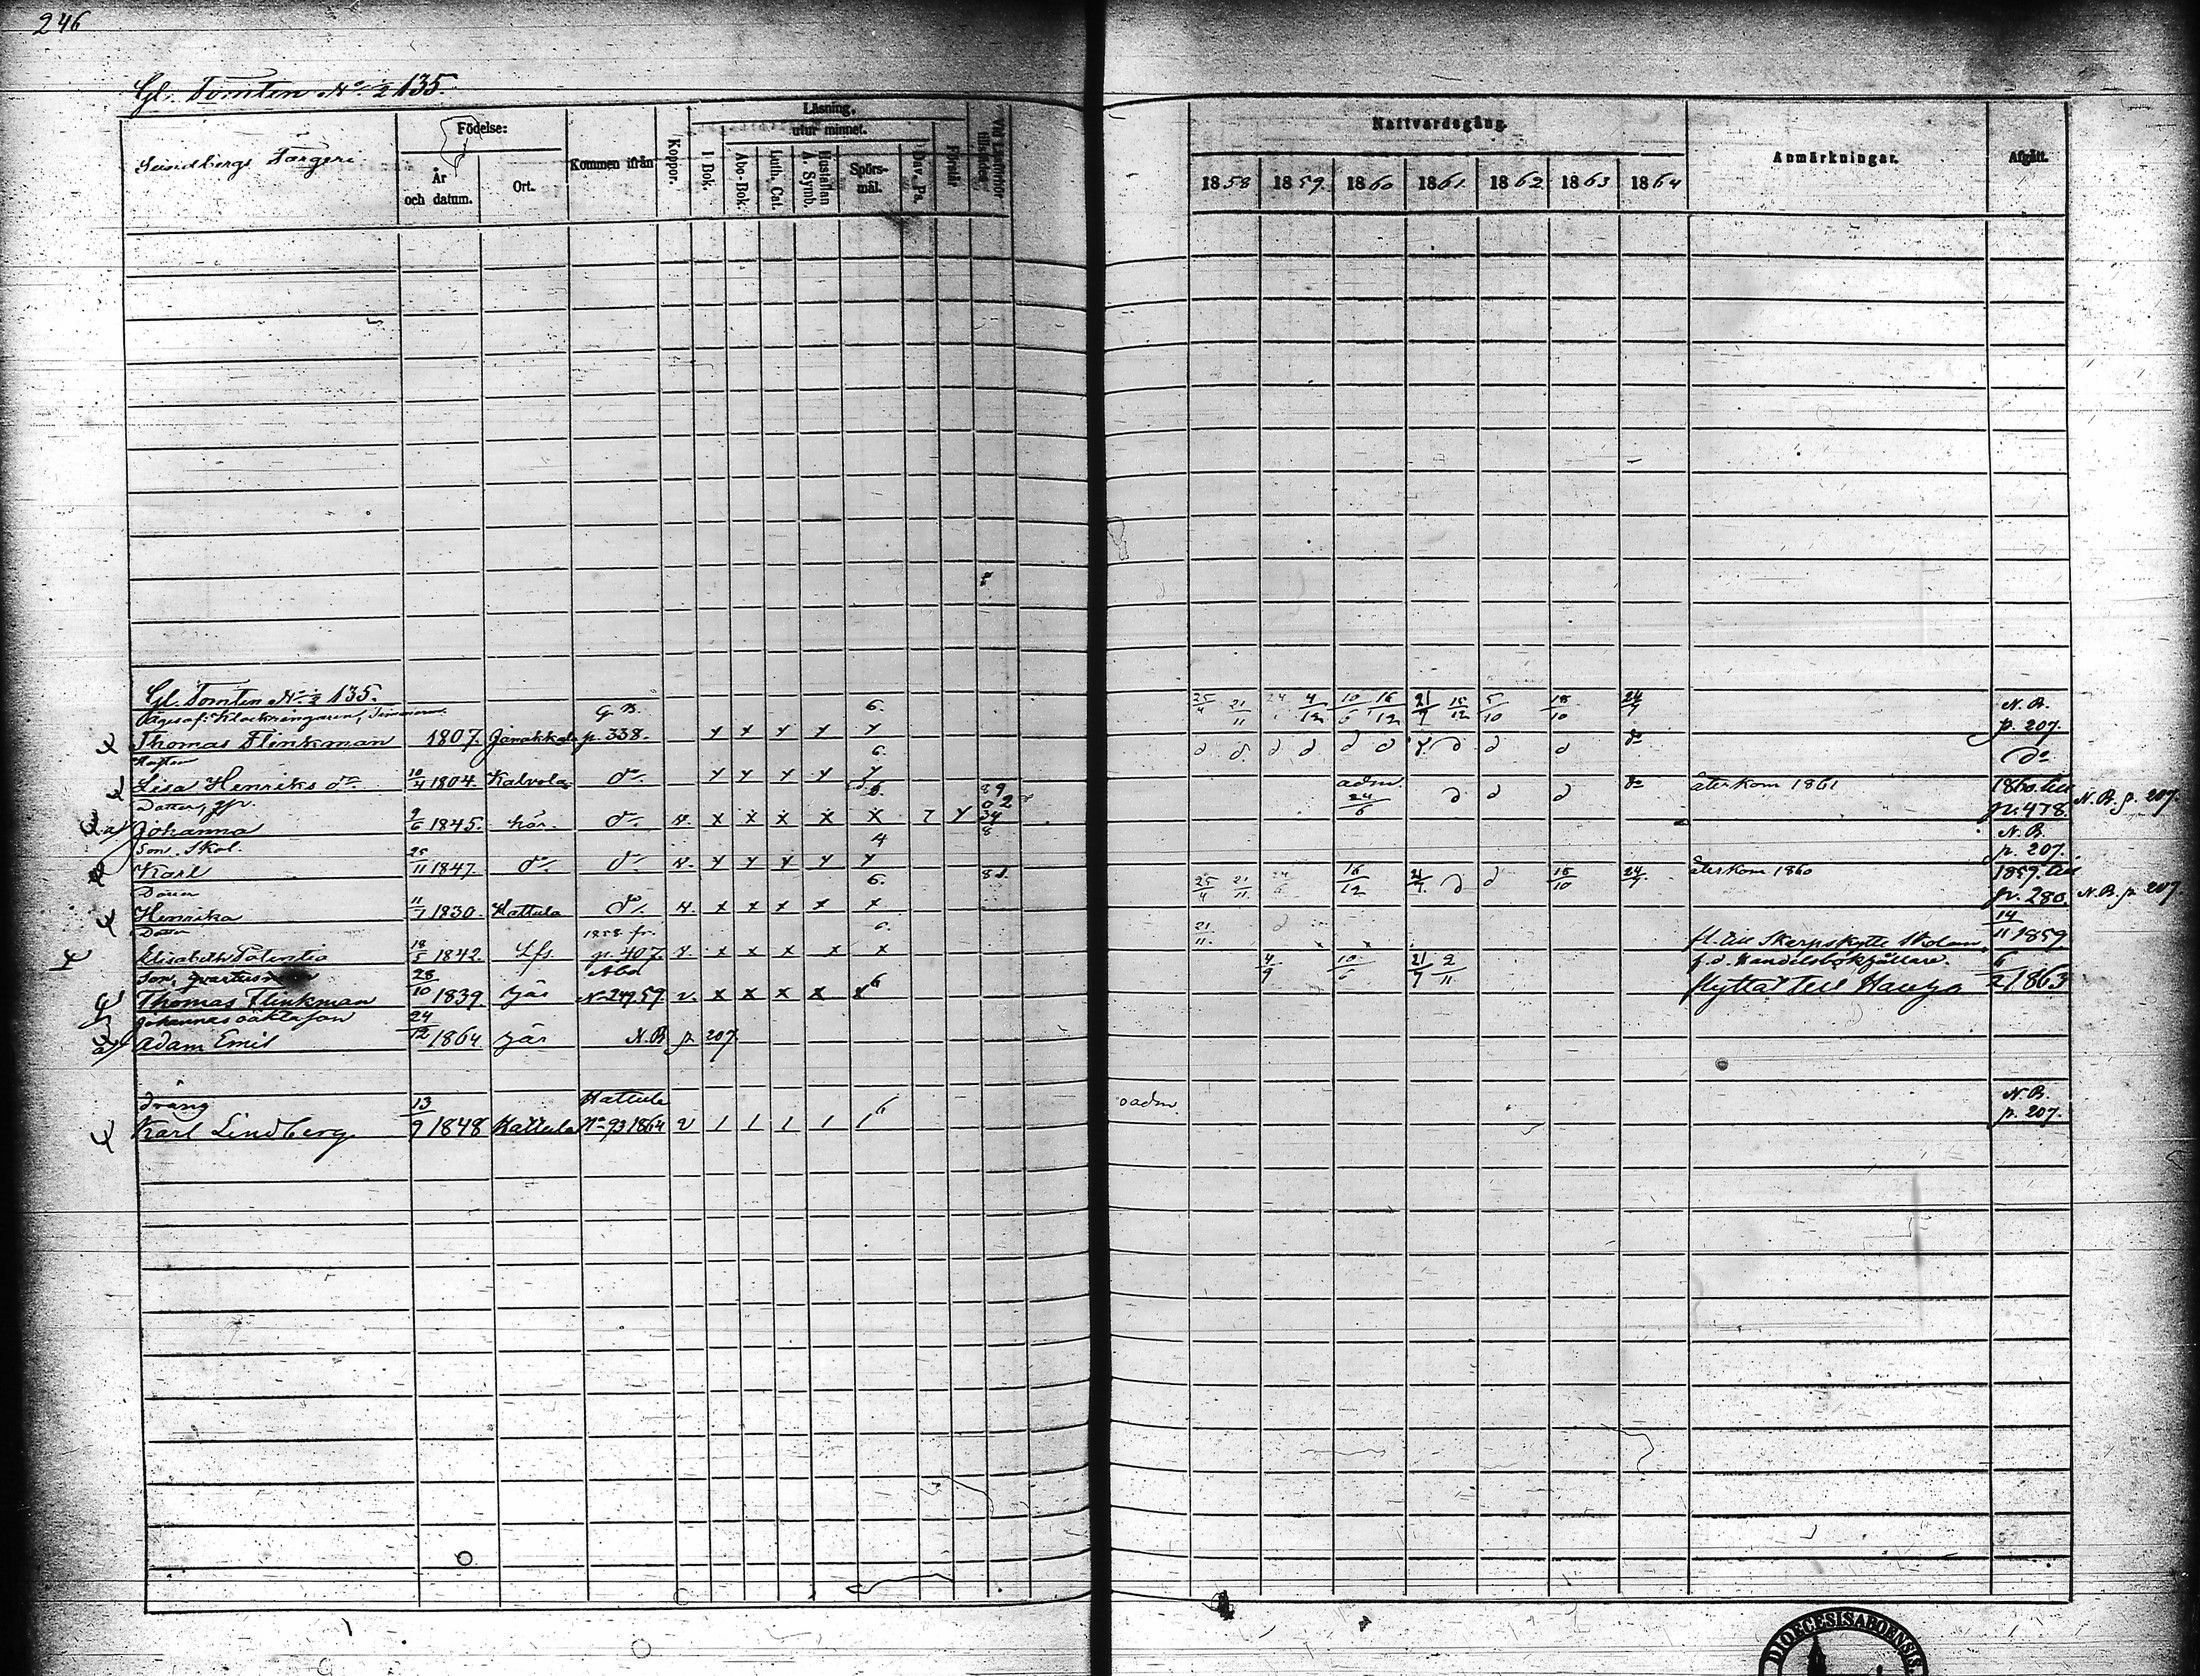 246
Gl. Tomten No 1/2 135.
Födelse:
År och datum.
Ort.
Kommen ifrån
Koppor.
Läsning,
utur minnet.
I Bok.
Abc-Bok.
Luth. Cat.
Hustaflan A. Symb.
Spörsmål.
Dav. Ps.
Förstår
Nattvardsgång.
1858 1859. 1860 1861. 1862 1863 1864
Anmärkningar.
Afgått.
Gl. Tomten No 1/2 135.
G B. 6. 25/4 21/11 24 4/12 10/6 16/12 21/7 15/12 5/10 18/10 24/7 N. B.
Thomas Flinkman 1807. Janakkala p. 338. p. 207.
Lisa Henriks dr. 10/4 1804. Kalvola do do
Dotter, gp. adm. 24/6 återkom 1861 1860 till
Johanna 9/6 1845. här. do p. 478. N. B. p. 207.
Son. Skol. 4 N. B.
Karl 25/11 1847. do do p. 207.
Dotter 6. 25/4 21/11 16/12 21/7 15/10 24/7 återkom 1860 1859. till
Henrika 11/1 1830. Hattula do p. 280. N. B. p. 207
Dotter 1858 fr. 6. 21/11 14/11 1859
Elisabeth 18/5 1842. Lfs p. 407 fl. till Skarpskytte
Son, Åbo 4/9 10/6 21/7 2/11 f. d. Handelsbokhållare. 6/2 1863
Thomas Flinkman 28/10 1839. här No 249. 59. v. x x x x x 6 flyttat till Hauho
Johannes
Adam Emil 24/12 1864 här N. B p. 207.
Dräng Hattula oadm. N. B.
Karl Lindberg 13/9 1848 Hattula No 93 1864 v 1 1 1 1 1 6 p. 207.
DIOECESIS ABOENSIS